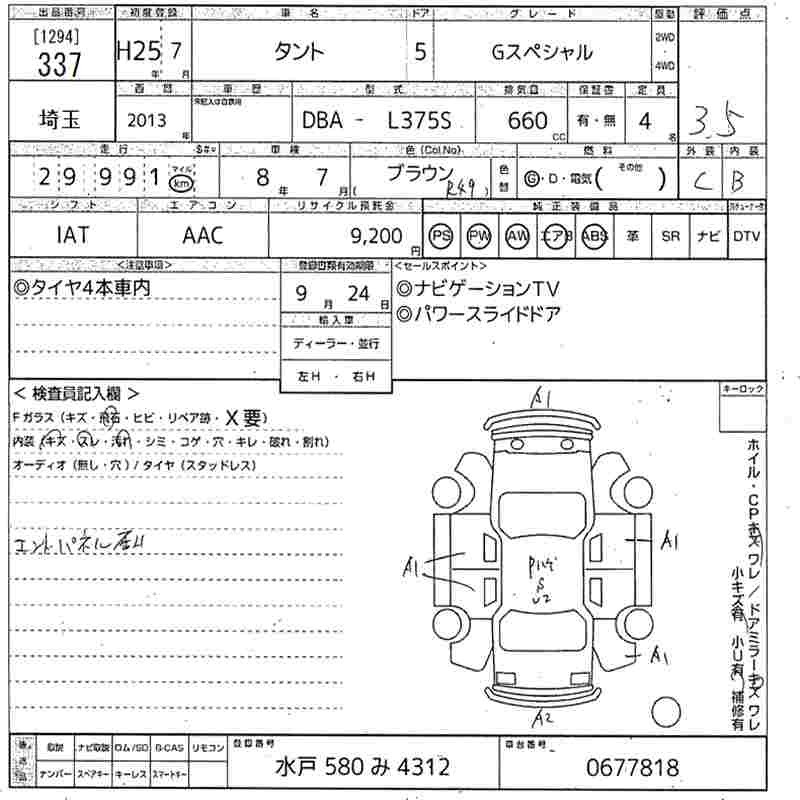 出品番号 初度登録 車名 ドア グレード 駆動 評価点
[1294] 337 H25 7 年 月 タント 5 Gスペシャル 2WD ・ 4WD
埼玉 西暦 車歴 型式 排気量 保証書 定員
2013 年 未記入は自家用 DBA - L375S 660 CC 有・無 4 名 3.5
走行 車検 色(Col.No) 燃料 外装 内装
29 991 マイル km 8 年 7 月 ブラウン ( R49 ) 色替 G・D・電気( その他 ) C B
シフト エアコン リサイクル預託金 純正装備品
IAT AAC 9,200 円 PS PW AW エアB ABS 革 SR ナビ DTV
<注意事項> 登録書類有効期限 <セールスポイント>
◎タイヤ4本車内 9 月 24 日 ◎ナビゲーションTV
◎パワースライドドア
輸入車
ディーラー・並行
左H ・ 右H
< 検査員記入欄 > キーロック
Fガラス(キズ・飛石・ヒビ・リペア跡・X要)
内装(キズ・スレ・汚れ・シミ・コゲ・穴・キレ・破れ・割れ)
オーディオ(無し・穴)/タイヤ(スタッドレス)
エンドパネル歪み
A1
A1
A1
Pハゲ
S
U2
A1
A2
ホイル・CPキズ ワレ/ドアミラーキズ ワレ
小キズ有 小U有 補修有
後送品 取説 ナビ取説 ロム/SD B-CAS リモコン 登録番号 車台番号
ナンバー スペアキー キーレス スマートキー 水戸 580 み 4312 0677818